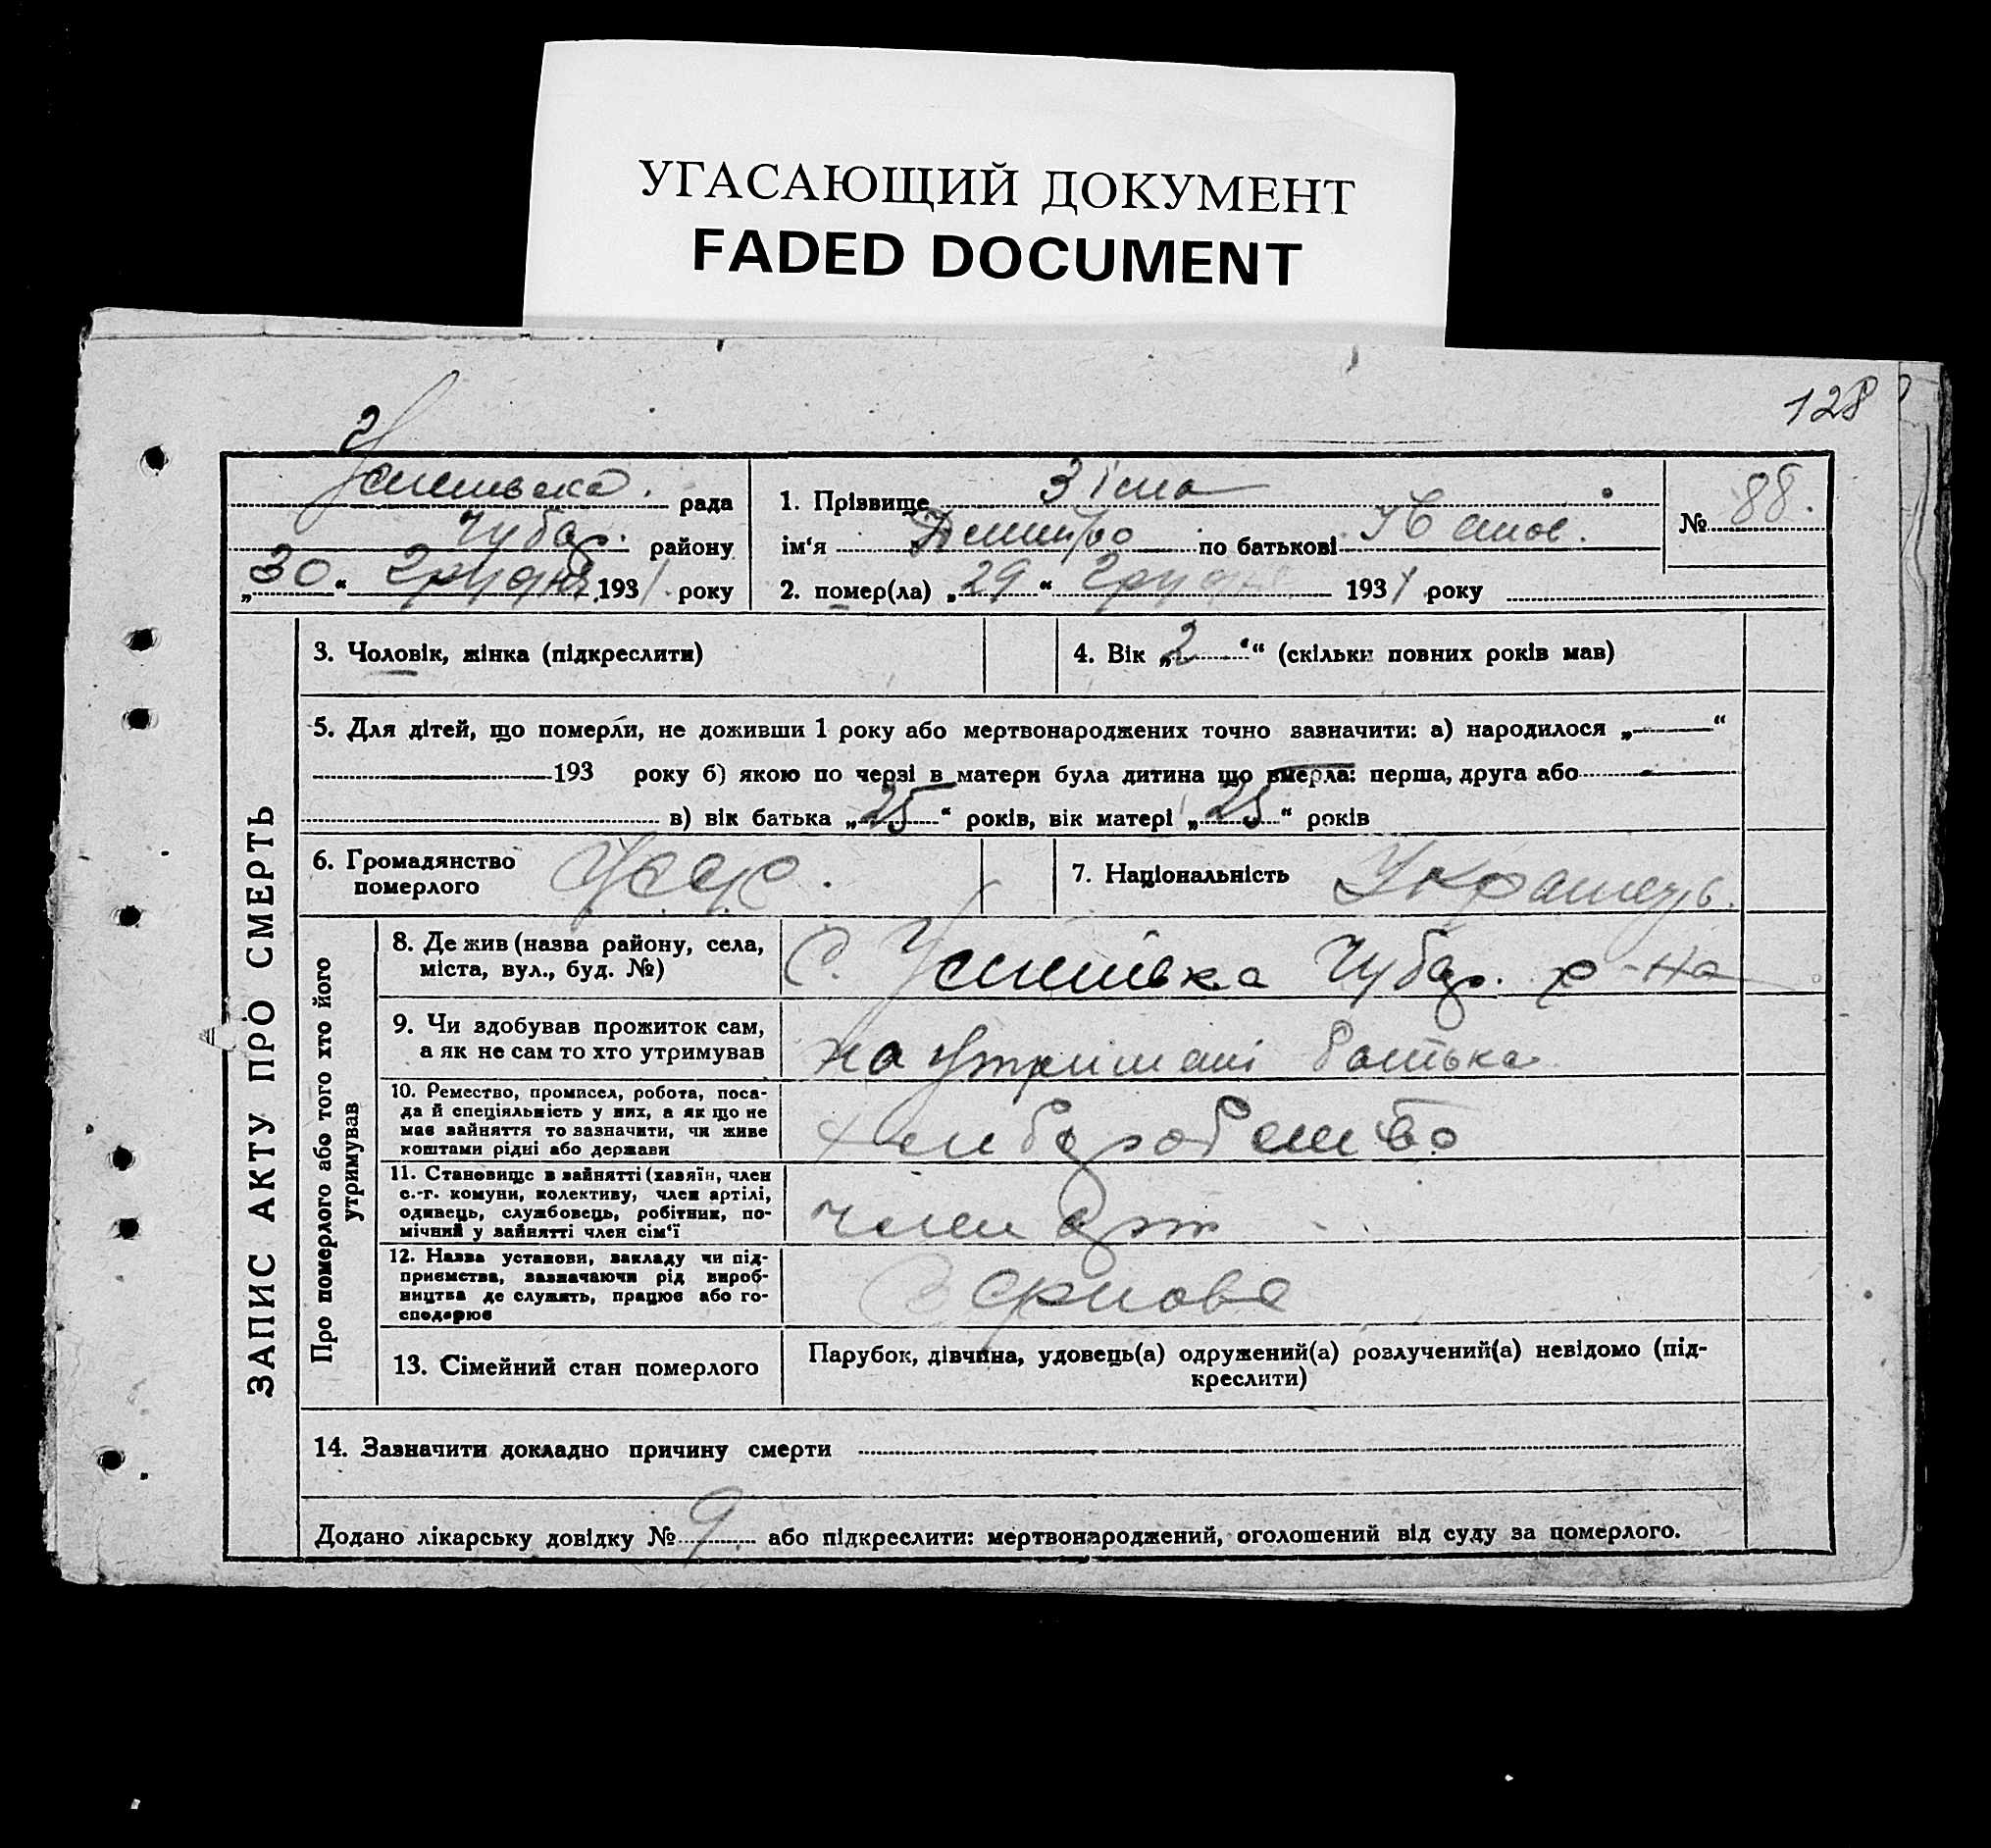 УГАСАЮЩИЙ ДОКУМЕНТ
FADED DOCUMENT
128
рада
Чубар. району
„30“ Грудня 1931 року
1. Прізвище Зіма
ім‘я Дмитро по батькові Іванов.
2. помер(ла) „29“ Грудня 1931 року
№ 88.
ЗАПИС АКТУ ПРО СМЕРТЬ
3. Чоловік, жінка (підкреслити)
4. Вік „2“ (скільки повних років мав)
5. Для дітей, що померли, не доживши 1 року або мертвонароджених точно зазначити: а) народилося „—“
193 року б) якою по черзі в матери була дитина що вмерла: перша, друга або
в) вік батька „25“ років, вік матері „25“ років
6. Громадянство
померлого
УССР.
7. Національність Украинець.
Про померлого або того хто його
утримував
8. Де жив (назва району, села,
міста, вул., буд. №)
С. Успенівка Чубар. р-на
9. Чи здобував прожиток сам,
а як не сам то хто утримував
на утримані батька
10. Ремество, промисел, робота, поса-
да й спеціяльність у них, а як що не
має зайняття то зазначити, чи живе
коштами рідні або держави
хлиборобство
11. Становище в зайнятті (хазяїн, член
с.-г. комуни, колективу, член артілі,
одинець, службовець, робітник, по-
мічний у зайнятті член сім‘ї
член арт
12. Назва установи, закладу чи під-
приємства, зазначаючи рід вироб-
ництва де служить, працює або го-
сподарює
Зернове
13. Сімейний стан померлого
Парубок, дівчина, удовець(а) одружений(а) розлучений(а) невідомо (під-
креслити)
14. Зазначити докладно причину смерти
Додано лікарську довідку № 9 або підкреслити: мертвонароджений, оголошений від суду за померлого.